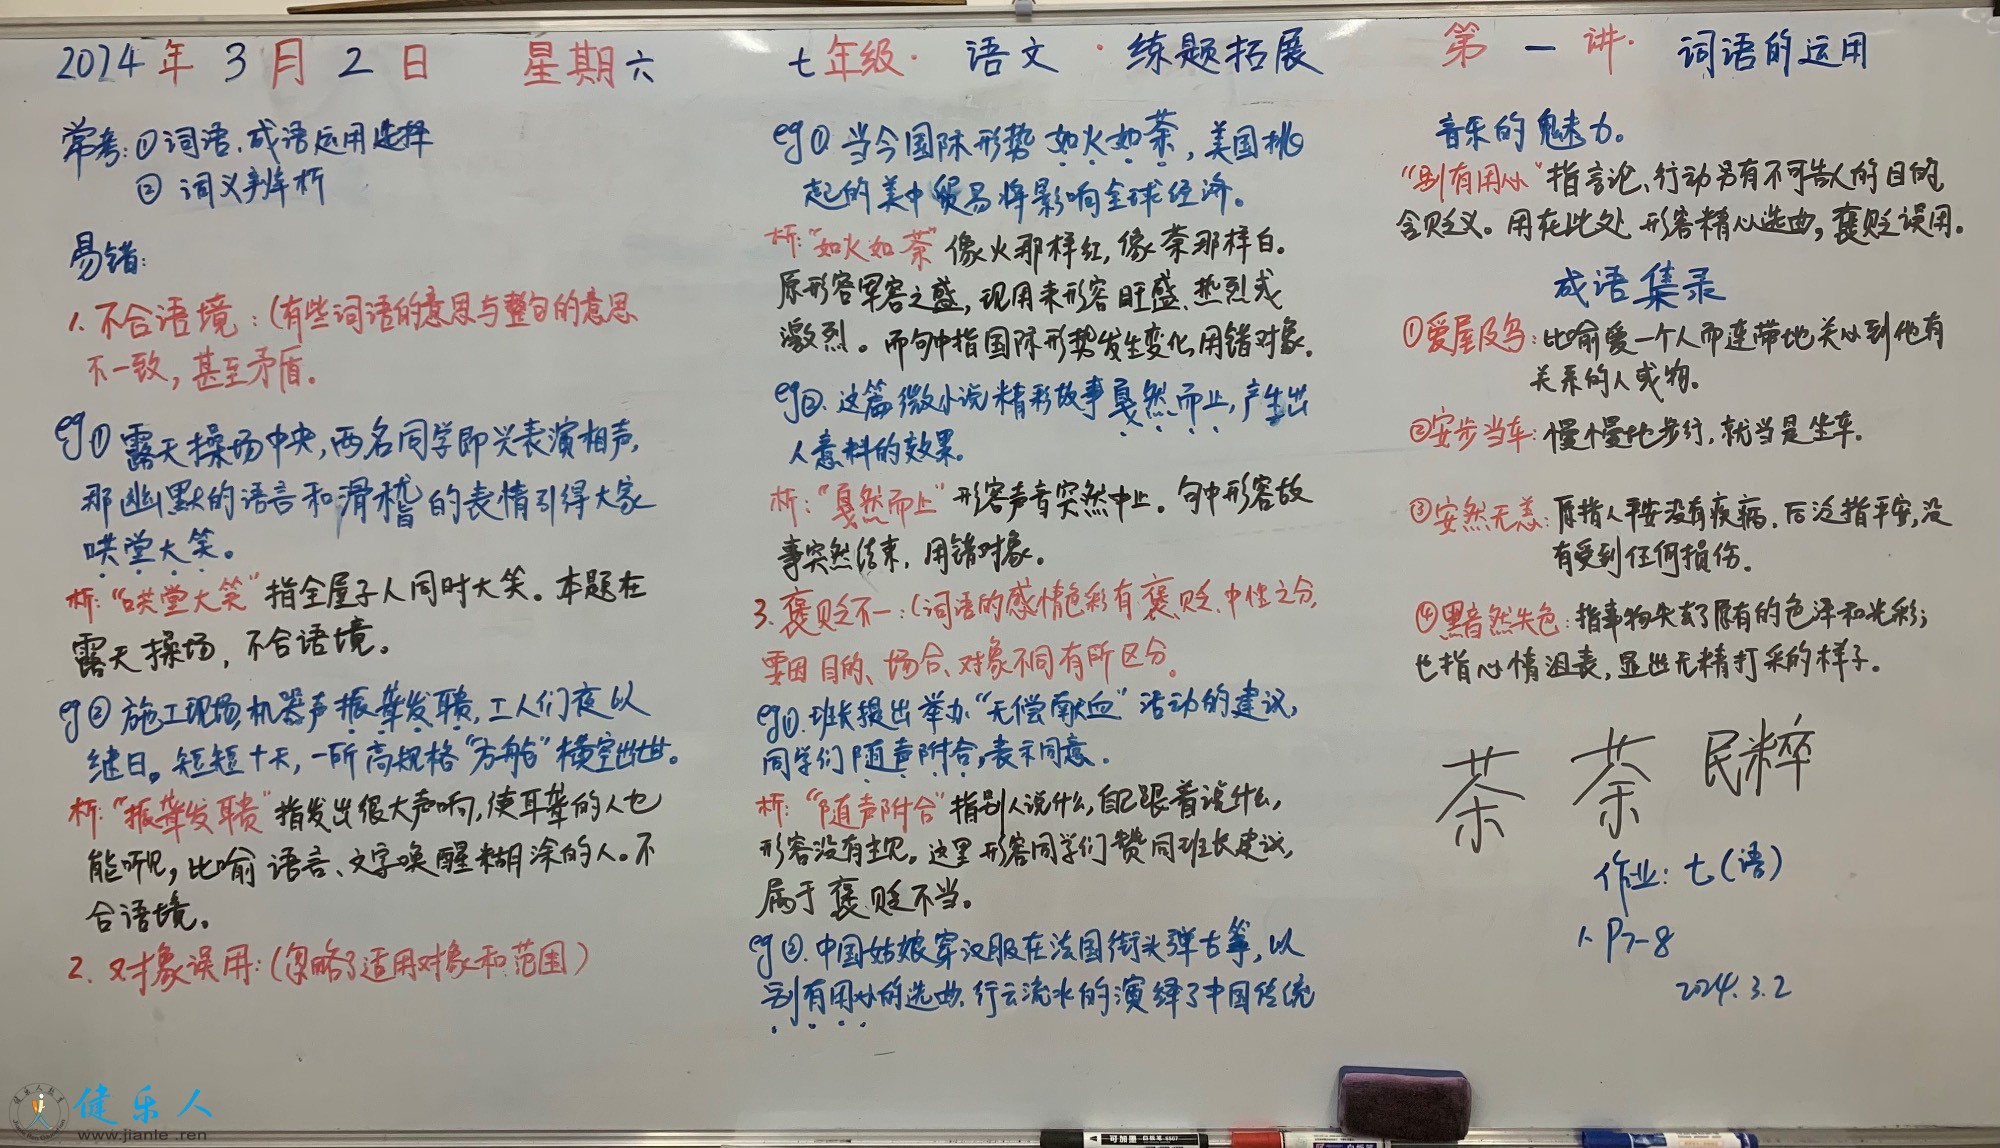 2024年3月2日 星期六 七年级·语文·练题拓展 第一讲·词语的运用
常考:①词语、成语运用选择
②词义辨析
易错:
1.不合语境:(有些词语的意思与整句的意思
不一致,甚至矛盾。
eg①露天操场中央,两名同学即兴表演相声,
那幽默的语言和滑稽的表情引得大家
哄堂大笑。
析:“哄堂大笑”指全屋子人同时大笑。本题在
露天操场,不合语境。
eg②施工现场机器声振聋发聩,工人们夜以
继日。短短十天,一所高规格“方舱”横空出世。
析:“振聋发聩”指发出很大声响,使耳聋的人也
能听见,比喻语言、文字唤醒糊涂的人。不
合语境。
2.对象误用:(忽略了适用对象和范围)
eg①当今国际形势如火如荼,美国挑
起的美中贸易将影响全球经济。
析:“如火如荼”像火那样红,像荼那样白。
原形容军容之盛,现用来形容旺盛、热烈或
激烈。而句中指国际形势发生变化,用错对象。
eg②.这篇微小说精彩故事戛然而止,产生出
人意料的效果。
析:“戛然而止”形容声音突然中止。句中形容故
事突然结束,用错对象。
3.褒贬不一:(词语的感情色彩有褒贬、中性之分,
要因目的、场合、对象不同有所区分。
eg①.班长提出举办“无偿献血”活动的建议,
同学们随声附合,表示同意.
析:“随声附合”指别人说什么,自己跟着说什么,
形容没有主见。这里形容同学们赞同班长建议,
属于褒贬不当。
eg②.中国姑娘穿汉服在法国街头弹古筝,以
别有用心的选曲、行云流水的演绎了中国传统
音乐的魅力。
“别有用心”指言论、行动另有不可告人的目的,
含贬义。用在此处形容精心选曲,褒贬误用。
成语集录
①爱屋及乌:比喻爱一个人而连带地关心到他有
关系的人或物。
②安步当车:慢慢地步行,就当是坐车.
③安然无恙:原指人平安没有疾病.后泛指平安,没
有受到任何损伤.
④黯然失色:指事物失去了原有的色泽和光彩;
也指心情沮丧,显出无精打采的样子。
茶 荼 民粹
作业:七(语)
1.P7-8
2024.3.2
健乐人
www.jianle.ren
可加墨 白板笔